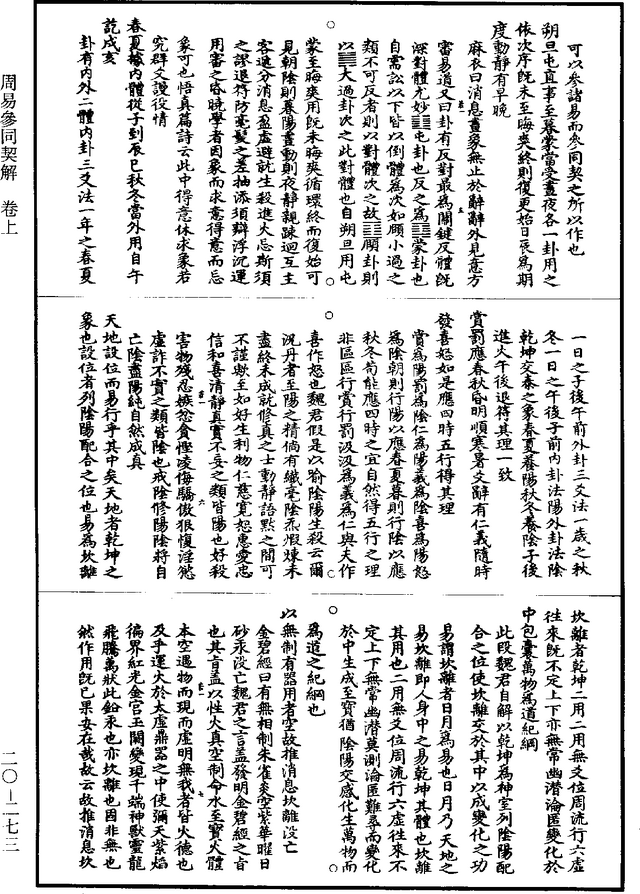 可以參諸易而參同契之所以作也
朔旦屯直事至暮蒙當受晝夜各一卦用之
依次序既未至晦爽終則復更始日辰為期
度動靜有早晚
麻衣曰消息畫象無止於辭辭外見意方
審易道又曰卦有反對最為關鍵反體既
深對體尤妙䷂屯卦也反之為䷃蒙卦也
自需訟以下皆以倒體為次如頤小過之
類不可反者則以對體次之故䷚頤卦則
以䷛大過卦次之此對體也自朔旦用屯
蒙至晦爽用既未晦爽循環終而復始可
見朝陰則養陽晝動則夜靜親疎迴互主
客進分消息盈虛避就生殺進火忌斯須
之謬退符防毫髮之差抽添須辯浮沉運
用審之昏曉學者因象而求意得意而忘
象可也悟真篇詩云此中得意休求象若
究群爻謾役情
春夏據內體從子到辰巳秋冬當外用自午
訖戌亥
卦有內外二體內卦三爻法一年之春夏
一日之子後午前外卦三爻法一歲之秋
冬一日之午後子前內卦法陽外卦法陰
乾坤交泰之象春夏養陽秋冬養陰子後
進火午後退符其理一致
賞罰應春秋昏明順寒暑爻辭有仁義隨時
發喜怒如是應四時五行得其理
賞為陽罰為陰仁為陽義為陰喜為陽怒
為陰朝則行陽以應春夏暮則行陰以應
秋冬苟能應四時之宜自然得五行之理
非區區行賞行罰汲汲為義為仁與夫作
喜作怒也魏君假是以喻陰陽生殺云爾
況丹者至陽之精倘有纖毫陰炁煆煉未
盡終未成就修真之士動靜語默之間可
不謹歟至如好生利物仁慈寬恕惠愛忠
信和喜清靜真實不妄之類皆陽也好殺
害物殘忍嫉忿貪慳凌侮驕傲狠愎淫慾
虛詐不實之類皆陰也戒陰修陽陰將自
亡陰盡陽純自然成真
天地設位而易行乎其中矣天地者乾坤之
象也設位者列陰陽配合之位也易為坎離
坎離者乾坤二用二用無爻位周流行六虛
往來既不定上下亦無常幽潛淪匿變化於
中包囊萬物為道紀綱
此段魏君自解以乾坤為神室列陰陽配
合之位使坎離交於其中以成變化之功
易謂坎離者日月為易也日月乃天地之
易坎離即人身中之易乾坤其體也坎離
其用也二用無爻位周流行六虛往來不
定上下無常幽潛莫測淪匿難尋而變化
於中生成至寶猶陰陽交感化生萬物而
為道之紀綱也
以無制有器用者空故推消息坎離沒亡
金碧經曰有無相制朱雀炎空紫華曜日
砂汞沒亡魏君之言蓋發明金碧經之旨
也其言蓋以性火真空制命水至寶火體
本空遇物而現而虛明無我者皆火德也
及乎運火於太虛鼎器之中使彌天紫焰
徧界紅光金宮玉闕變現千端神獸靈龍
飛騰萬狀此鉛汞也亦坎離也因非無也
然作用既已果安在哉故云故推消息坎
周易參同契解 卷上
二〇—二七三